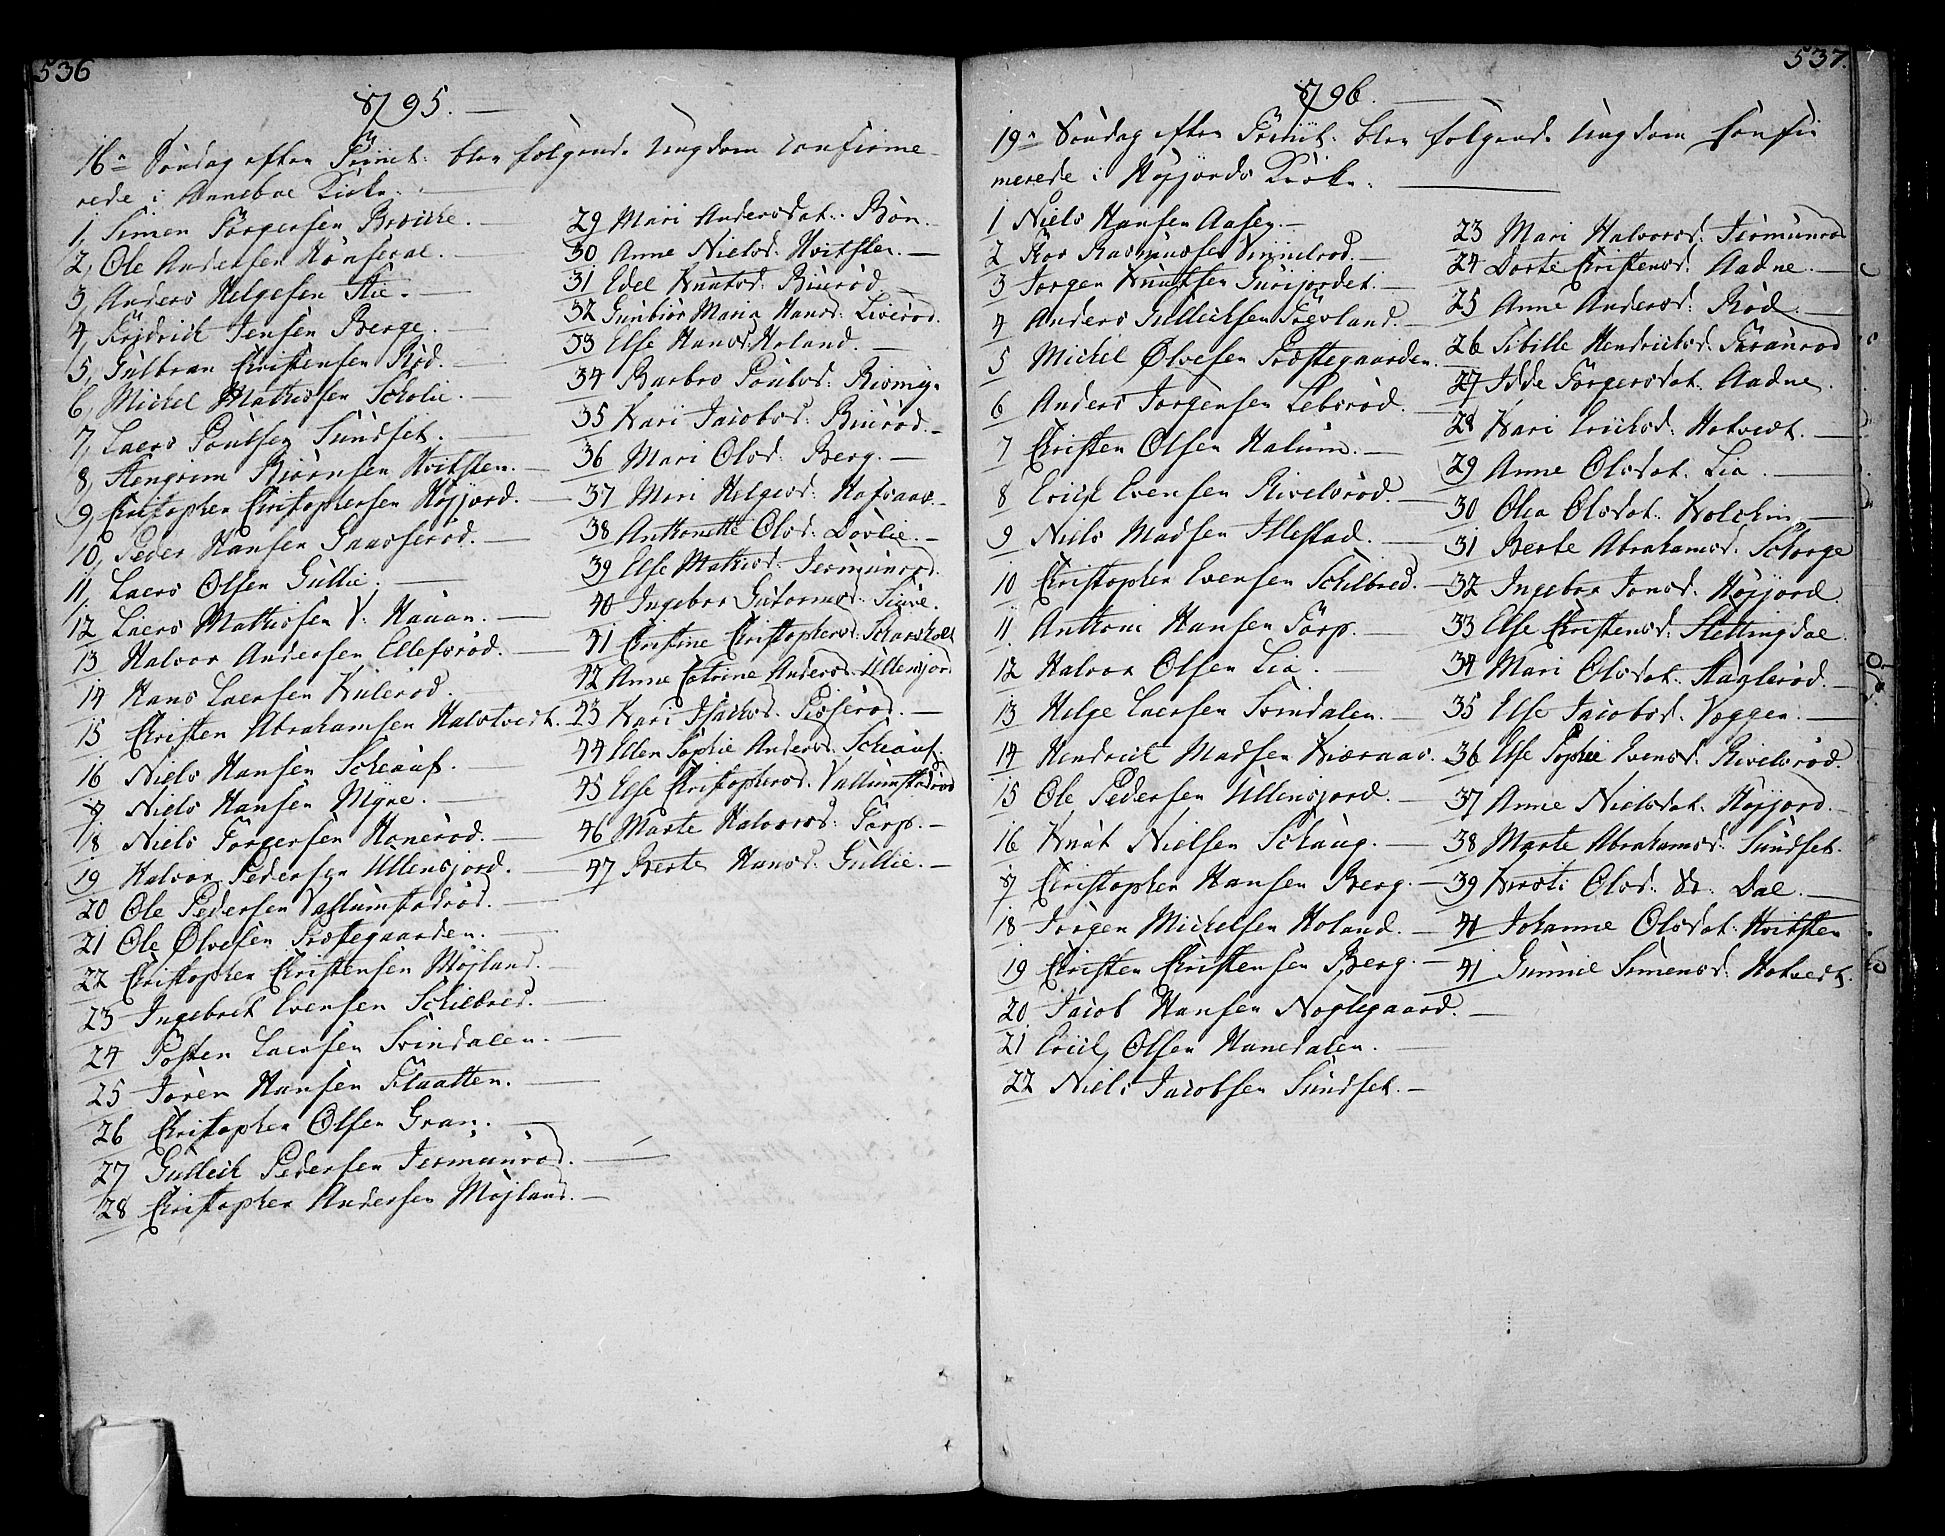 536
1795.
16n Søndag efter Trinit: blev følgende Ungdom Confirme-
rede i Annebøe Kirke.
1, Simen Törgersen Brekke.
2, Ole Andersen Hönserae.
3, Anders Helgesen Stie.
4, Fridrick Jensen Berge.
5, Gulbran Christensen Röd.
6, Mickel Mathisen Scholie.
7, Laers Poulsen Sundset.
8, Stengrim Biörnsen Hvitsten.
9, Christopher Christophersen Höjjord.
10, Peder Hansen Gaaseröd.
11, Laers Olsen Gullie.
12 Laers Mathisen V: Hauan.
13 Halvor Andersen Ellefsröd.
14 Hans Laersen Kuleröd.
15 Christen Abrahamsen Halstvedt.
16 Niels Hansen Scheauf.
17 Niels Hansen Myre.
18 Niels Törgersen Haneröd.
19 Halvor Pedersen Ullensjord.
20 Ole Pedersen Vallumstadröd.
21 Ole Ølvesen Præstegaarden.
22 Christopher Christensen Möjland.
23 Ingebret Evensen Schilbred.
24 Tosten Laersen Svindalen.
25 Sören Hansen Flaatten.
26 Christopher Olsen Gran.
27 Gullick Pedersen Jermunröd.
28 Christopher Andersen Möjland.
29 Mari Andersdat: Bön.
30 Anne Nielsd: Hvitsten.
31 Edel Knutsd: Biuröd.
32 Gunbiör Maria Hansd: Liveröd.
33 Else Hansd: Holand.
34 Barbro Poulsd: Rismyr
35 Kari Jacobsd: Biuröd.
36 Mari Olsd: Berg.
37 Mari Helgesd: Hafsaas.
38 Anthonette Olsd: Dövlie.
39 Else Mathisd: Jermunröd.
40 Ingebor Gutormsd: Tinne.
41 Christine Christophersd: Scharsholt
42 Anne Catrine Andersd: Ullensjord
43 Kari Isacksd: Pisseröd.
44 Ellen Sophie Andersd: Scheauf.
45 Else Christophersd: Vallumstadröd
46 Marte Halvorsd: Törp.
47 Berte Hansd: Gullie.
537.
1796.
19n Søndag efter Trinit: blev følgende Ungdom Confir
merede i Höjjords Kirke.
1 Niels Hansen Aasen.
2 Roar Rasmussen Vimmelröd.
3 Jörgen Knutsen Gurijordet.
4 Anders Gullicksen Trevland.
5 Mickel Ølvesen Præstegaarden.
6 Anders Jörgensen Lebsröd.
7 Christen Olsen Halum.
8 Erick Evensen Rivelsröd.
9 Niels Madsen Illestad.
10 Christopher Evensen Schilbred.
11 Anthoni Hansen Törp.
12 Halvor Olsen Lia.
13 Helge Laersen Svindalen.
14 Hendrick Madsen Kiæraas.
15 Ole Pedersen Ullensjord.
16 Knut Nielsen Schaug.
17 Christopher Hansen Berg.
18 Jörgen Mickelsen Holand.
19 Christen Christensen Berg.
20 Jacob Hansen Nöglegaard.
21 Erick Olsen Hanedalen.
22 Niels Jacobsen Sundset.
23 Mari Halvorsd: Jermunröd
24 Dorte Christensd: Aadne.
25 Anne Andersd: Röd.
26 Sibille Hendricksd: Faranröd
27 Idde Törgersdat: Aadne.
28 Kari Ericksd: Hotvedt.
29 Anne Olsdat: Lia.
30 Olea Olsdat: Kolckin.
31 Berte Abrahamsd: Schorge
32 Ingebor Jonsd: Höjjord.
33 Else Christensd: Slettingdal.
34 Mari Olsdat: Hagleröd.
35 Else Jacobsd: Voggen.
36 Else Sophie Evensd: Rivelsröd.
37 Anne Nielsdat: Höjjord.
38 Marte Abrahamsd: Sundset.
39 Kirsti Olsd: V: Dal.
40 Johanne Olsdat: Hvitsten
41 Gunnil Simensd: Hotvedt.